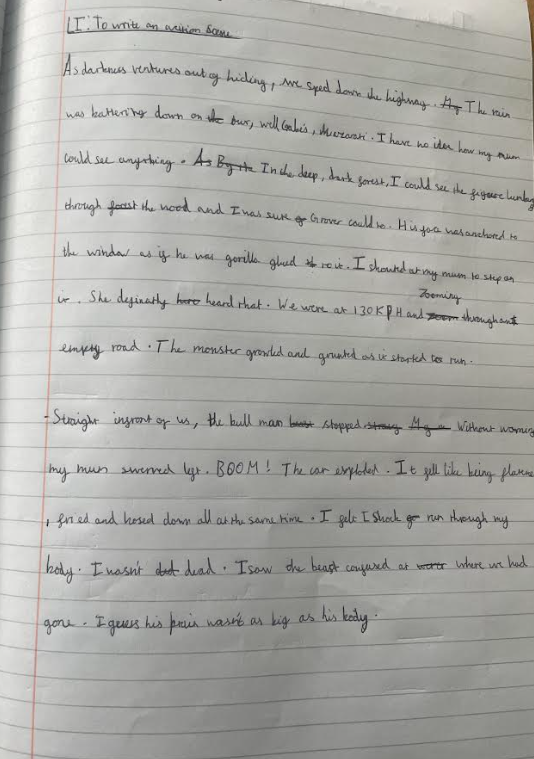 LI: To write an action scene
As darkness ventures out of hiding, we sped down the highway. The rain
was battering down on our, well Gabe's, Maserati. I have no idea how my mum
could see anything. In the deep, dark forest, I could see the figure
through the wood and I was sure Grover could to. His face was anchored to
the window as if he was gorilla glued to it. I shouted at my mum to step on
it. She definatly heard that. We were at 130 KPH and zooming through
empty road. The monster growled and grunted as it started to run.
- Straight infront of us, the bull man stopped. Without warning
my mum swerved left. BOOM! The car exploded. It fell like being
, fried and hosed down all at the same time. I felt I shock run through my
body. I wasn't dead. I saw the beast confused at where we had
gone. I guess his brain wasn't as big as his body.